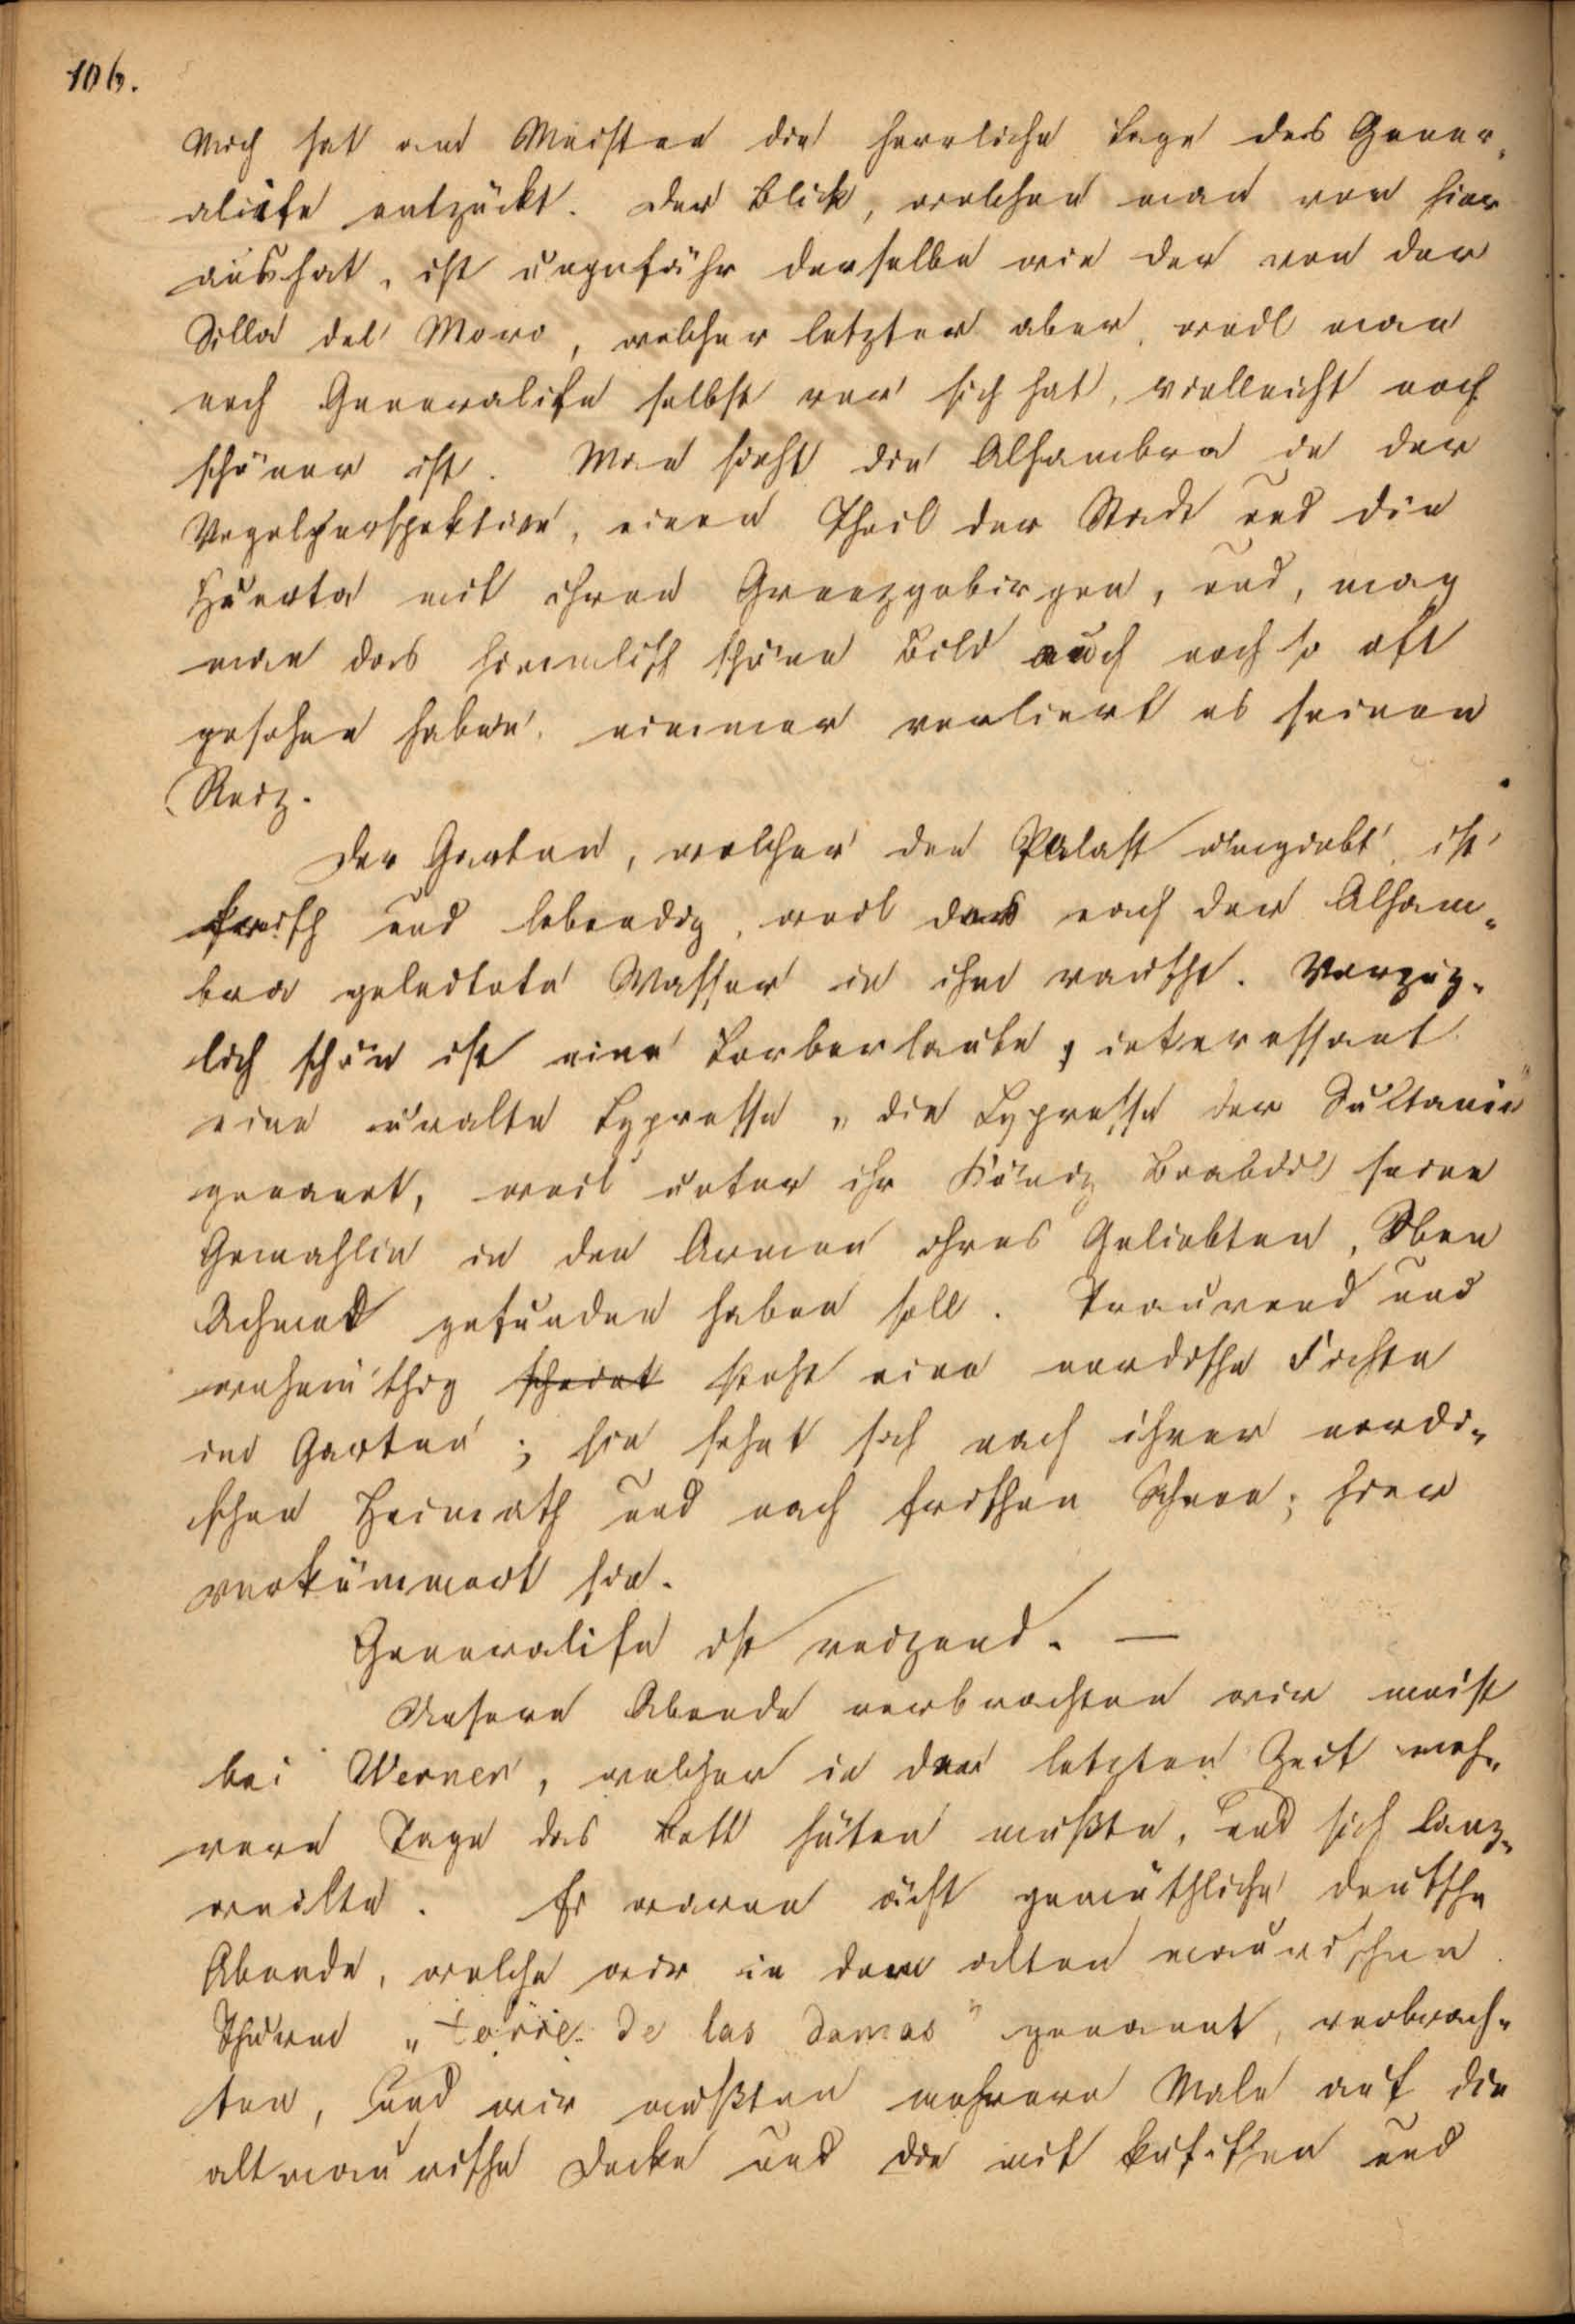 106.
Mich hat am Meisten die herrliche Lage des Gener„
aliefe entzückt. Der Blick, welchen man von hier
aus hat, ist ungefähr derselbe wie der von der
Silla del Moro, welcher letzter aber, weil man
noch Generalife selbst vor sich hat, vielleicht noch
schöner ist. Man sieht die Alhambra in der
Vogelperspektive, einen Theil der Stadt und die
Huerta mit ihren Grenzgebirgen, und, mag
man das himmlisch schöne Bild auch noch so oft
gesehen haben, nimmer verliert es seinen
Reiz.
Der Garten, welcher den Palast umgiebt, ist
frisch und lebendig, weil das nach der Alham„
bra geleitete Wasser in ihm rauscht. Vorzüg„
lich schön ist eine Lorberlaube, interessant
eine uralte Cypresse „die Cypresse der Sultanin“
genannt, weil unter ihr König Boabdil seine
Gemahlin in den Armen ihres Geliebten, Aben
Achmed gefunden haben soll. Traurend und
wehmüthig scheint steht eine nordische Fichte
im Garten; sie sehnt sich nach ihrer nordi„
schen Heimath und nach frischen Schnee; hier
verkümmert sie.
Generalife ist reizend. —
Unsere Abende verbrachten wir meist
bei Werner, welcher in der letzten Zeit meh„
rere Tage das Bett hüten mußte, und sich lang„
weilte. Es waren ächt gemüthliche deutsche
Abende, welche wir in dem alten maurischen
Thurm „torre de las damas“ genannt, verbrach„
ten, und wir mußten mehrere Male auf die
altmaurische Decke und die mit kufischen und